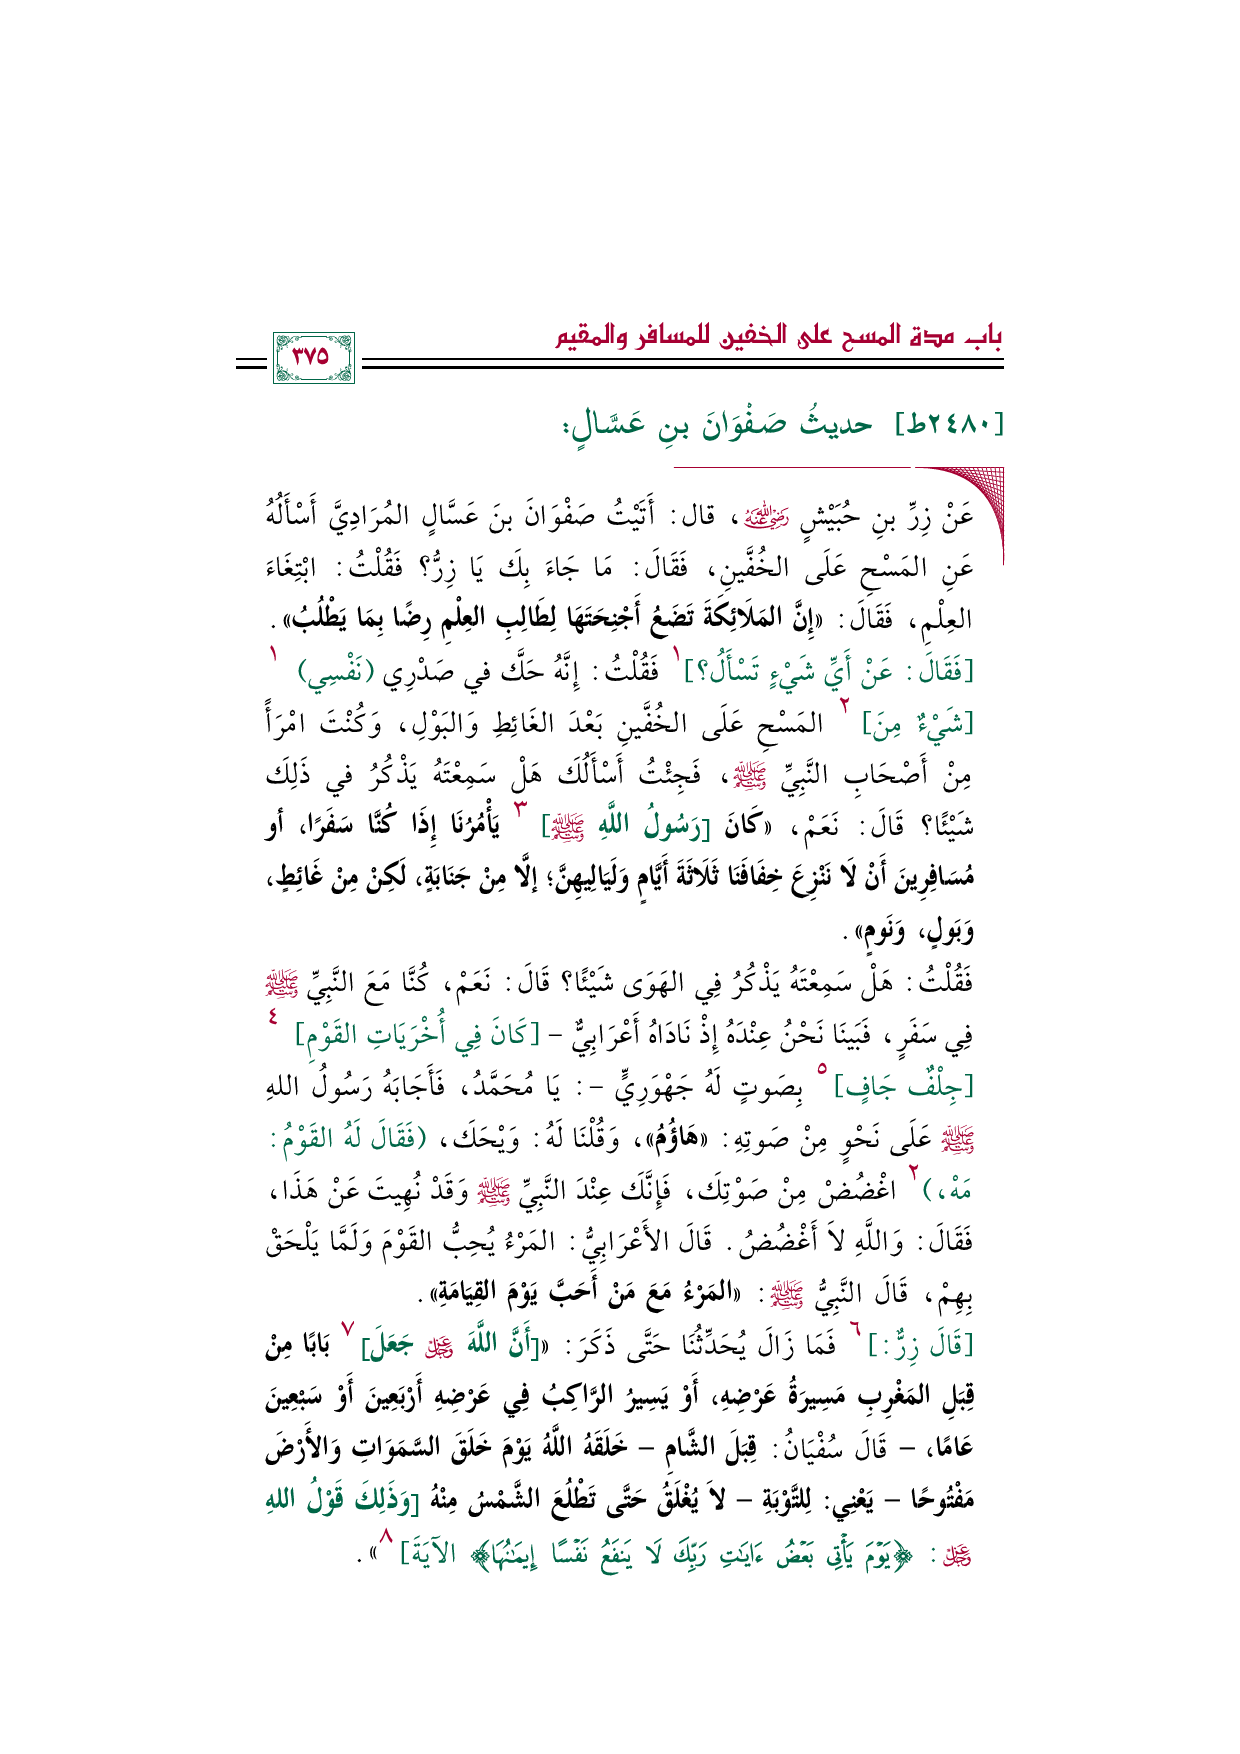 باب مدة المسح على الخفين للمسافر والمقيم
٣٧٥
[٢٤٨٠ط] حديثُ صَفْوَانَ بنِ عَسَّالٍ:
عَنْ زِرِّ بنِ حُبَيْشٍ رَضِيَ اللَّهُ عَنْهُ، قال: أَتَيْتُ صَفْوَانَ بنَ عَسَّالٍ المُرَادِيَّ أَسْأَلُهُ
عَنِ المَسْحِ عَلَى الخُفَّينِ، فَقَالَ: مَا جَاءَ بِكَ يَا زِرُّ؟ فَقُلْتُ: ابْتِغَاءَ
العِلْمِ، فَقَالَ: «إِنَّ المَلَائِكَةَ تَضَعُ أَجْنِحَتَهَا لِطَالِبِ العِلْمِ رِضًا بِمَا يَطْلُبُ».
[فَقَالَ: عَنْ أَيِّ شَيْءٍ تَسْأَلُ؟]١ فَقُلْتُ: إِنَّهُ حَكَّ في صَدْرِي (نَفْسِي) ١
[شَيْءٌ مِنَ] ٢ المَسْحِ عَلَى الخُفَّينِ بَعْدَ الغَائِطِ وَالبَوْلِ، وَكُنْتَ امْرَأً
مِنْ أَصْحَابِ النَّبِيِّ ﷺ، فَجِئْتُ أَسْأَلُكَ هَلْ سَمِعْتَهُ يَذْكُرُ في ذَلِكَ
شَيْئًا؟ قَالَ: نَعَمْ، «كَانَ [رَسُولُ اللَّهِ ﷺ] ٣ يَأْمُرُنَا إِذَا كُنَّا سَفَرًا، أو
مُسَافِرِينَ أَنْ لَا نَنْزِعَ خِفَافَنَا ثَلَاثَةَ أَيَّامٍ وَلَيَالِيهِنَّ؛ إلَّا مِنْ جَنَابَةٍ، لَكِنْ مِنْ غَائِطٍ،
وَبَولٍ، وَنَومٍ».
فَقُلْتُ: هَلْ سَمِعْتَهُ يَذْكُرُ فِي الهَوَى شَيْئًا؟ قَالَ: نَعَمْ، كُنَّا مَعَ النَّبِيِّ ﷺ
فِي سَفَرٍ، فَبَينَا نَحْنُ عِنْدَهُ إِذْ نَادَاهُ أَعْرَابِيٌّ – [كَانَ فِي أُخْرَيَاتِ القَوْمِ] ٤
[جِلْفٌ جَافٍ] ٥ بِصَوتٍ لَهُ جَهْوَرِيٍّ –: يَا مُحَمَّدُ، فَأَجَابَهُ رَسُولُ اللهِ
ﷺ عَلَى نَحْوٍ مِنْ صَوتِهِ: «هَاؤُمُ»، وَقُلْنَا لَهُ: وَيْحَكَ، (فَقَالَ لَهُ القَوْمُ:
مَهْ،) ٢ اغْضُضْ مِنْ صَوْتِكَ، فَإِنَّكَ عِنْدَ النَّبِيِّ ﷺ وَقَدْ نُهِيتَ عَنْ هَذَا،
فَقَالَ: وَاللَّهِ لاَ أَغْضُضُ. قَالَ الأَعْرَابِيُّ: المَرْءُ يُحِبُّ القَوْمَ وَلَمَّا يَلْحَقْ
بِهِمْ، قَالَ النَّبِيُّ ﷺ: «المَرْءُ مَعَ مَنْ أَحَبَّ يَوْمَ القِيَامَةِ».
[قَالَ زِرٌّ:] ٦ فَمَا زَالَ يُحَدِّثُنَا حَتَّى ذَكَرَ: «[أَنَّ اللَّهَ عَزَّ وَجَلَّ جَعَلَ] ٧ بَابًا مِنْ
قِبَلِ المَغْرِبِ مَسِيرَةُ عَرْضِهِ، أَوْ يَسِيرُ الرَّاكِبُ فِي عَرْضِهِ أَرْبَعِينَ أَوْ سَبْعِينَ
عَامًا، – قَالَ سُفْيَانُ: قِبَلَ الشَّامِ – خَلَقَهُ اللَّهُ يَوْمَ خَلَقَ السَّمَوَاتِ وَالأَرْضَ
مَفْتُوحًا – يَعْنِي: لِلتَّوْبَةِ – لاَ يُغْلَقُ حَتَّى تَطْلُعَ الشَّمْسُ مِنْهُ [وَذَلِكَ قَوْلُ اللهِ
عَزَّ وَجَلَّ: ﴿يَوْمَ يَأْتِي بَعْضُ ءَايَٰتِ رَبِّكَ لَا يَنفَعُ نَفْسًا إِيمَٰنُهَا﴾ الآيَةَ] ٨».